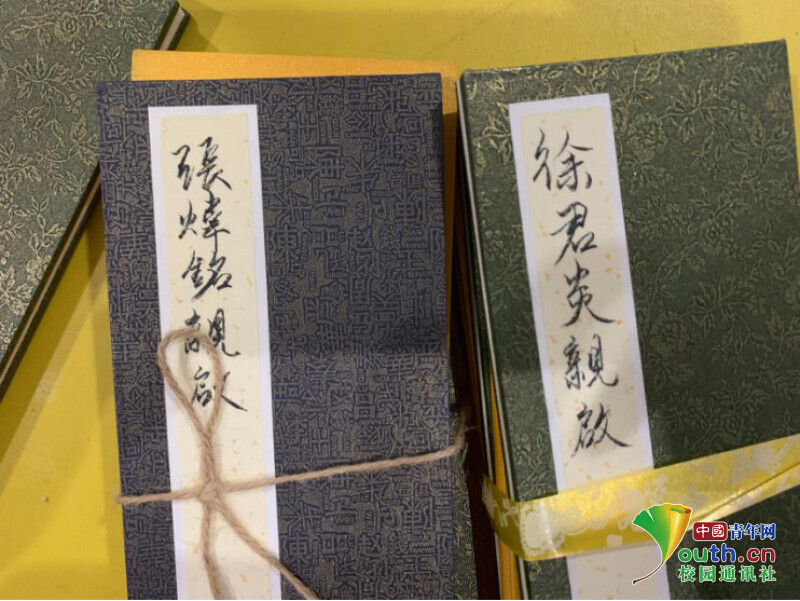 張煒銘親啟
徐君炎親啟
中國青年网
youth.cn
校园通讯社